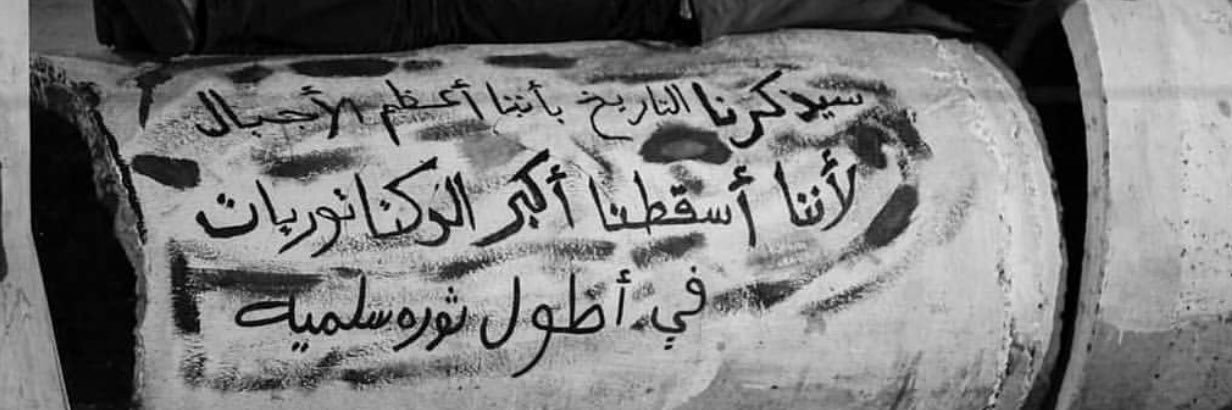 سيذكرنا التاريخ بأننا أعظم الأجيال
لأننا أسقطنا أكبر الدكتاتوريات
في أطول ثوره سلميه